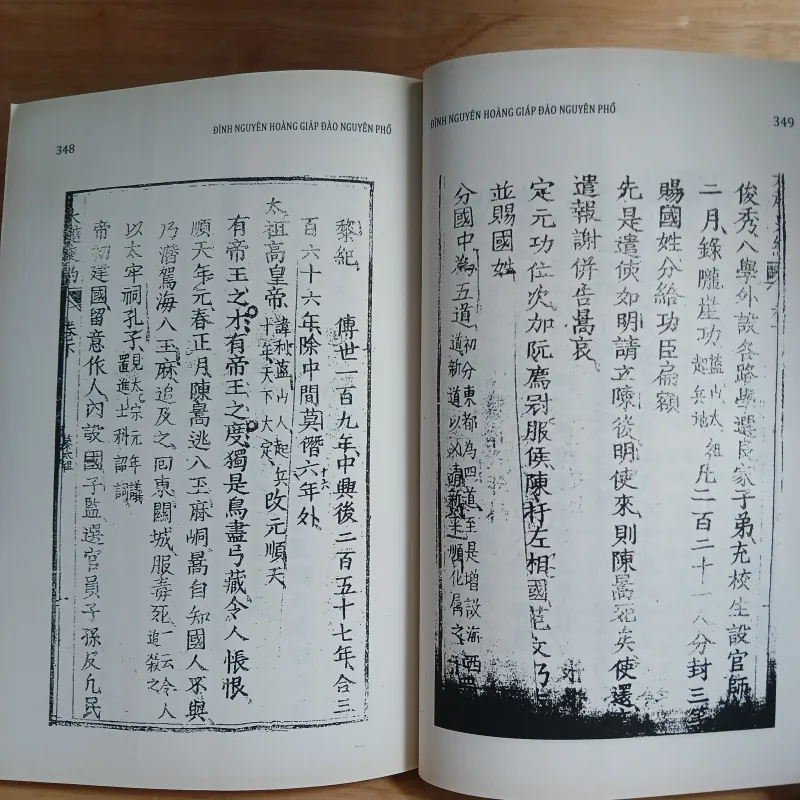 348
ĐÌNH NGUYÊN HOÀNG GIÁP ĐÀO NGUYÊN PHỔ
黎紀 傳世一百九年中興後二百五十七年合三
百六十六年除中間莫僭六十六年外
太祖高皇帝諱利藍山人起兵十年天下大定改元順天
有帝王之才有帝王之度獨是鳥盡弓藏令人悵恨
順天年元春正月陳暠逃入玉麻峒暠自知國人不與
乃潛駕海入玉麻追及之回東關城服毒死一云令人追殺之
以太牢祠孔子見太宗元年議置進士科詔詞
帝初建國留意作人內設國子監選官員子孫及凡民
ĐÌNH NGUYÊN HOÀNG GIÁP ĐÀO NGUYÊN PHỔ
349
俊秀入學外設各路學選良家子弟充校生設官師
二月錄隴崖功藍山太祖起兵地凡二百二十一人分封三等
賜國姓分給功臣扁額
先是遣使如明請立陳後明使來則陳暠死矣使還
遣報謝併告暠哀
定元功位次加阮廌冠服侯陳扞左相國范文巧
並賜國姓
分國中為五道初分東都為四道至是增設海西道